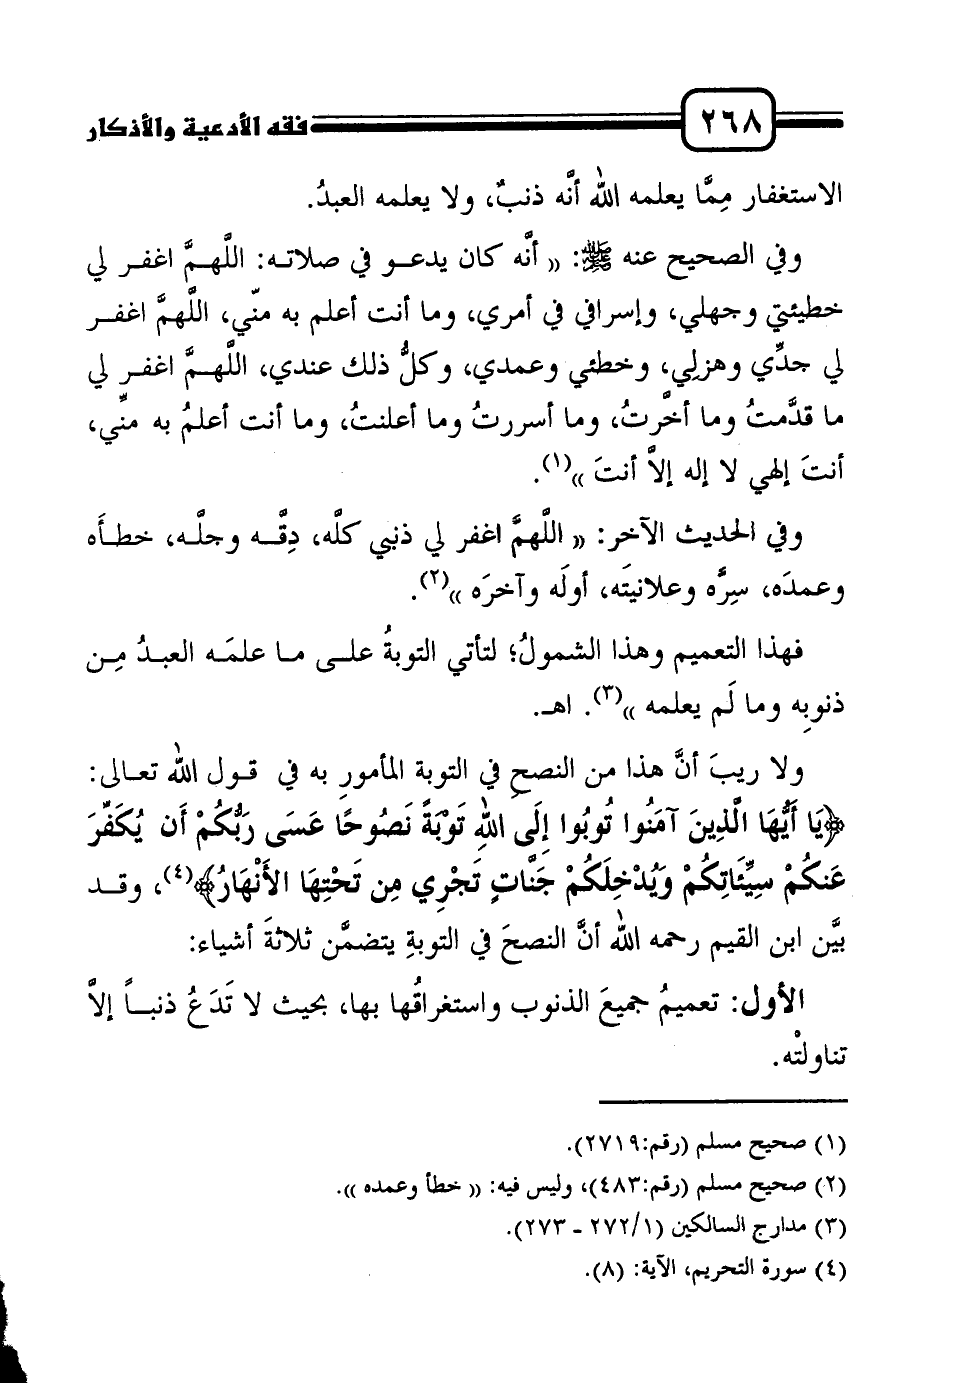 ٢٦٨ فقه الأدعية والأذكار
الاستغفار مِمَّا يعلمه اللهُ أنَّه ذنبٌ، ولا يعلمه العبدُ.
وفي الصحيح عنه ﷺ: « أنَّه كان يدعـو في صلاتـه: اللَّهـمَّ اغفـر لي
خطيئتي وجهلي، وإسرافي في أمري، وما أنت أعلم به منّي، اللَّهمَّ اغفـر
لي جدِّي وهزلي، وخطئي وعمدي، وكلُّ ذلك عندي، اللَّهـمَّ اغفـر لي
ما قدَّمتُ وما أخَّرتُ، وما أسررتُ وما أعلنتُ، وما أنت أعلمُ به منِّي،
أنتَ إلهي لا إله إلاَّ أنتَ »(١).
وفي الحديث الآخر: « اللَّهمَّ اغفر لي ذنبي كلَّه، دِقَّـه وجلَّـه، خطـأه
وعمدَه، سِرَّه وعلانيتَه، أولَه وآخرَه »(٢).
فهذا التعميم وهذا الشمولُ؛ لتأتي التوبةُ علـى مـا علمَـه العبـدُ مِـن
ذنوبِه وما لَم يعلمه »(٣). اهـ.
ولا ريبَ أنَّ هذا من النصحِ في التوبة المأمورِ به في قول اللهُ تعـالى:
﴿يَا أَيُّهَا الَّذِينَ آمَنُوا تُوبُوا إِلَى اللهِ تَوْبَةً نَصُوحًا عَسَى رَبُّكُمْ أَن يُكَفِّرَ
عَنكُمْ سَيِّئَاتِكُمْ وَيُدْخِلَكُمْ جَنَّاتٍ تَجْرِي مِن تَحْتِهَا الأَنْهَارُ﴾(٤)، وقـد
بيَّن ابن القيم رحمه اللهُ أنَّ النصحَ في التوبةِ يتضمَّن ثلاثةَ أشياء:
الأول: تعميمُ جميعَ الذنوب واستغراقُها بها، بحيث لا تَدَعُ ذنبـاً إلاَّ
تناولتْه.
(١) صحيح مسلم (رقم:٢٧١٩).
(٢) صحيح مسلم (رقم:٤٨٣)، وليس فيه: « خطأ وعمده ».
(٣) مدارج السالكين (٢٧٢/١ ـ ٢٧٣).
(٤) سورة التحريم، الآية: (٨).